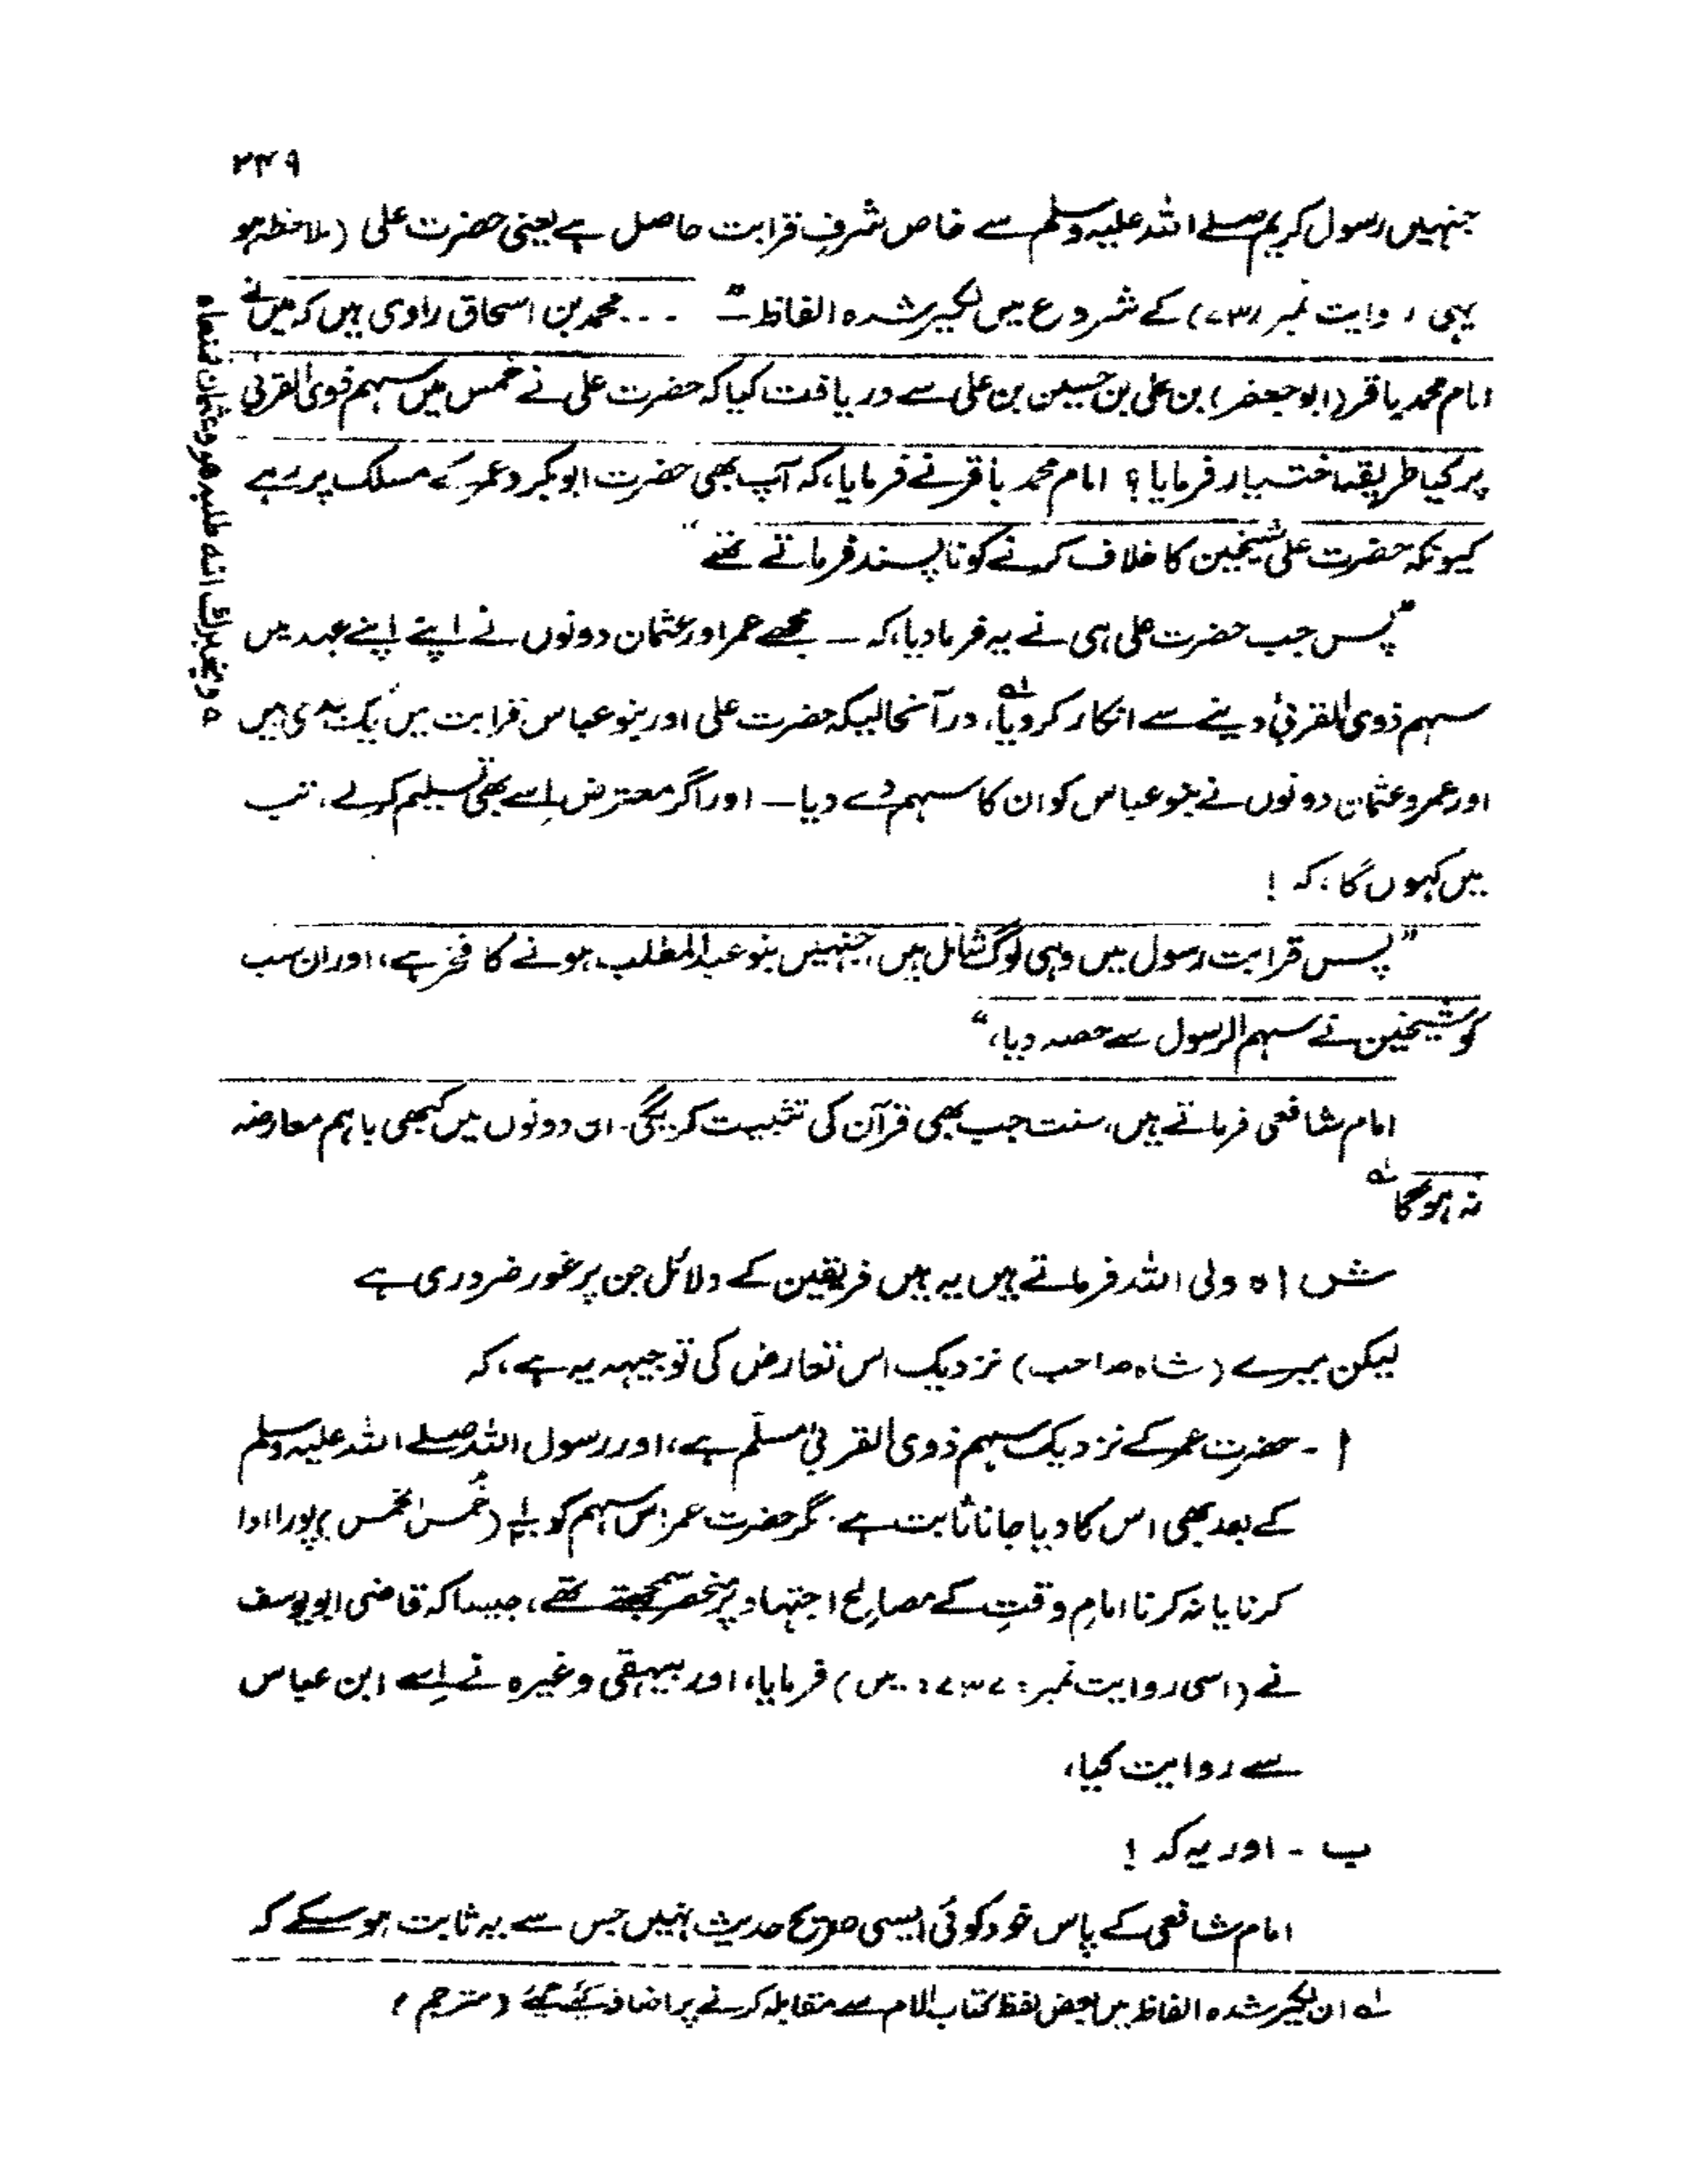 ۲۴۹
جنہیں رسول کریم صلے اللہ علیہ وسلم سے خاص شرفِ قرابت حاصل ہے یعنی حضرت علی (ملاحظہ ہو
یہی روایت نمبر ۷۳۷) کے شروع میں لکیر شدہ الفاظ ــ " ... محمد بن اسحاق راوی ہیں کہ میں نے
امام محمد باقر (ابو جعفر) بن علی بن حسین بن علی سے دریافت کیا کہ حضرت علی نے خمس میں سہم ذوی القربیٰ
پر کیا طریقہ اختیار فرمایا؟ امام محمد باقر نے فرمایا، کہ آپ بھی حضرت ابوبکر و عمر کے مسلک پر رہے
کیونکہ حضرت علی شیخین کا خلاف کرنے کو ناپسند فرماتے تھے"
"پس جب حضرت علی ہی نے یہ فرما دیا، کہ ــ مجھے عمر اور عثمان دونوں نے اپنے اپنے عہد میں
سہم ذوی القربیٰ دینے سے انکار کر دیا، درآنحالیکہ حضرت علی اور بنو عباس قرابت میں یک جدی ہیں
اور عمر و عثمان دونوں نے بنو عباس کو ان کا سہم دے دیا ــ اور اگر معترض اِسے بھی تسلیم کرلے، تب
میں کہوں گا، کہ !
"پس قرابت رسول میں وہی لوگ شامل ہیں، جنہیں بنو عبدالمطلب ہونے کا فخر ہے، اور ان سب
کو شیخین نے سہم الرسول سے حصہ دیا،"
امام شافعی فرماتے ہیں، سنت جب بھی قرآن کی تثبیت کریگی۔ ان دونوں میں کبھی باہم معارضہ
نہ ہوگا لہ
شاہ ولی اللہ فرماتے ہیں یہ ہیں فریقین کے دلائل جن پر غور ضروری ہے
لیکن میرے (شاہ صاحب) نزدیک اس تعارض کی توجیہہ یہ ہے، کہ
ا ۔ حضرت عمر کے نزدیک سہم ذوی القربیٰ مسلّم ہے، اور رسول اللہ صلے اللہ علیہ وسلم
کے بعد بھی اس کا دیا جانا ثابت ہے۔ مگر حضرت عمر اس سہم کو (خُمس الخمس) پورا ادا
کرنا یا نہ کرنا امامِ وقتِ کے مصالح اجتہاد پر منحصر سمجھتے تھے، جیسا کہ قاضی ابو یوسف
نے (اسی روایت نمبر : ۷۳۷ : میں) فرمایا، اور بیہقی وغیرہ نے اِسے ابن عباس
سے روایت کیا،
ب ۔ اور یہ کہ !
امام شافعی کے پاس خود کوئی ایسی صریح حدیث نہیں جس سے یہ ثابت ہو سکے کہ
لہ ان لکیر شدہ الفاظ میں بعض لفظ کتاب الام سے مقابلہ کرنے پر اضافہ کئے گئے (مترجم)